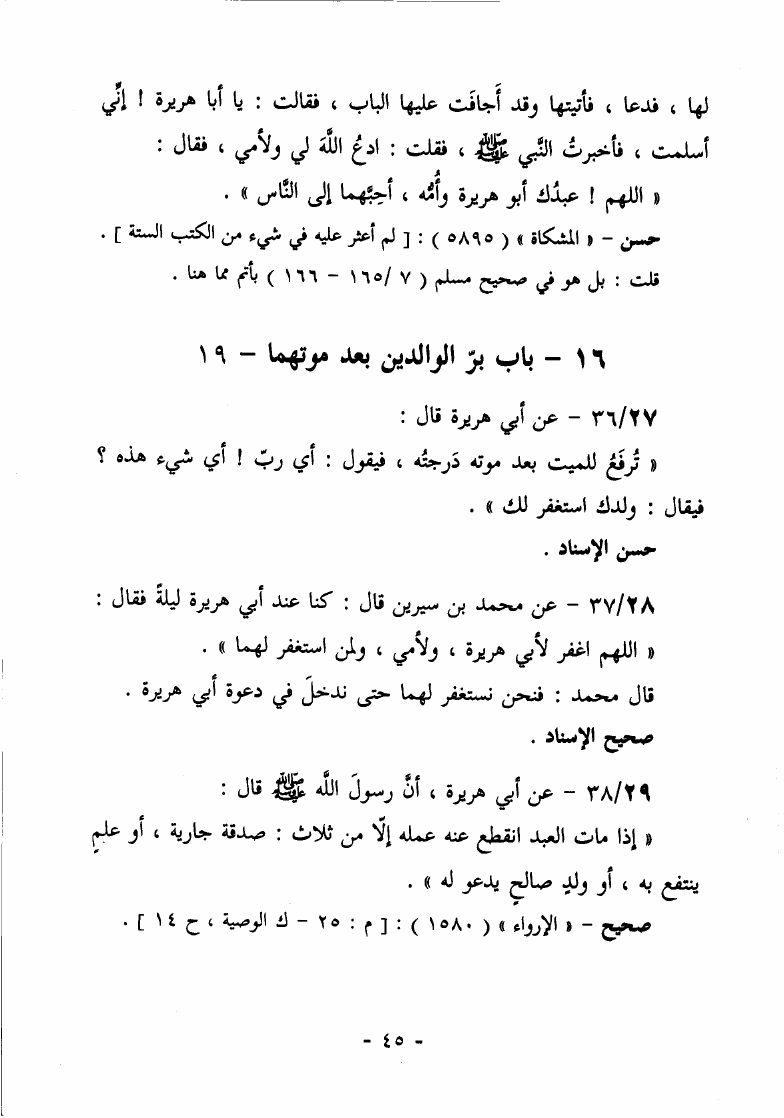 لها ، فدعا ، فأتيتها وقد أَجافَت عليها الباب ، فقالت : يا أبا هريرة ! إنِّي
أسلمت ، فأخبرتُ النَّبي ﷺ ، فقلت : ادعُ اللَّهَ لي ولأمي ، فقال :
« اللهم ! عبدُك أبو هريرة وأُمُّه ، أحِبَّهما إلى النَّاس » .
حسن – « المشكاة » ( ٥٨٩٥ ) : [ لم أعثر عليه في شيء من الكتب الستة ] .
قلت : بل هو في صحيح مسلم ( ٧ /١٦٥ – ١٦٦ ) بأتم مما هنا .
١٦ – باب برّ الوالدين بعد موتهما – ١٩
٣٦/٢٧ – عن أبي هريرة قال :
« تُرفَعُ للميت بعد موته دَرجتُه ، فيقول : أي ربّ ! أي شيء هذه ؟
فيقال : ولدك استغفر لك » .
حسن الإسناد .
٣٧/٢٨ – عن محمد بن سيرين قال : كنا عند أبي هريرة ليلةً فقال :
« اللهم اغفر لأبي هريرة ، ولأمي ، ولمن استغفر لهما » .
قال محمد : فنحن نستغفر لهما حتى ندخلَ في دعوة أبي هريرة .
صحيح الإسناد .
٣٨/٢٩ – عن أبي هريرة ، أنَّ رسولَ اللَّه ﷺ قال :
« إذا مات العبد انقطع عنه عمله إلَّا من ثلاث : صدقة جارية ، أو علمٍ
ينتفع به ، أو ولدٍ صالحٍ يدعو له » .
صحيح – « الإرواء » ( ١٥٨٠ ) : [ م : ٢٥ – ك الوصية ، ح ١٤ ] .
- ٤٥ -